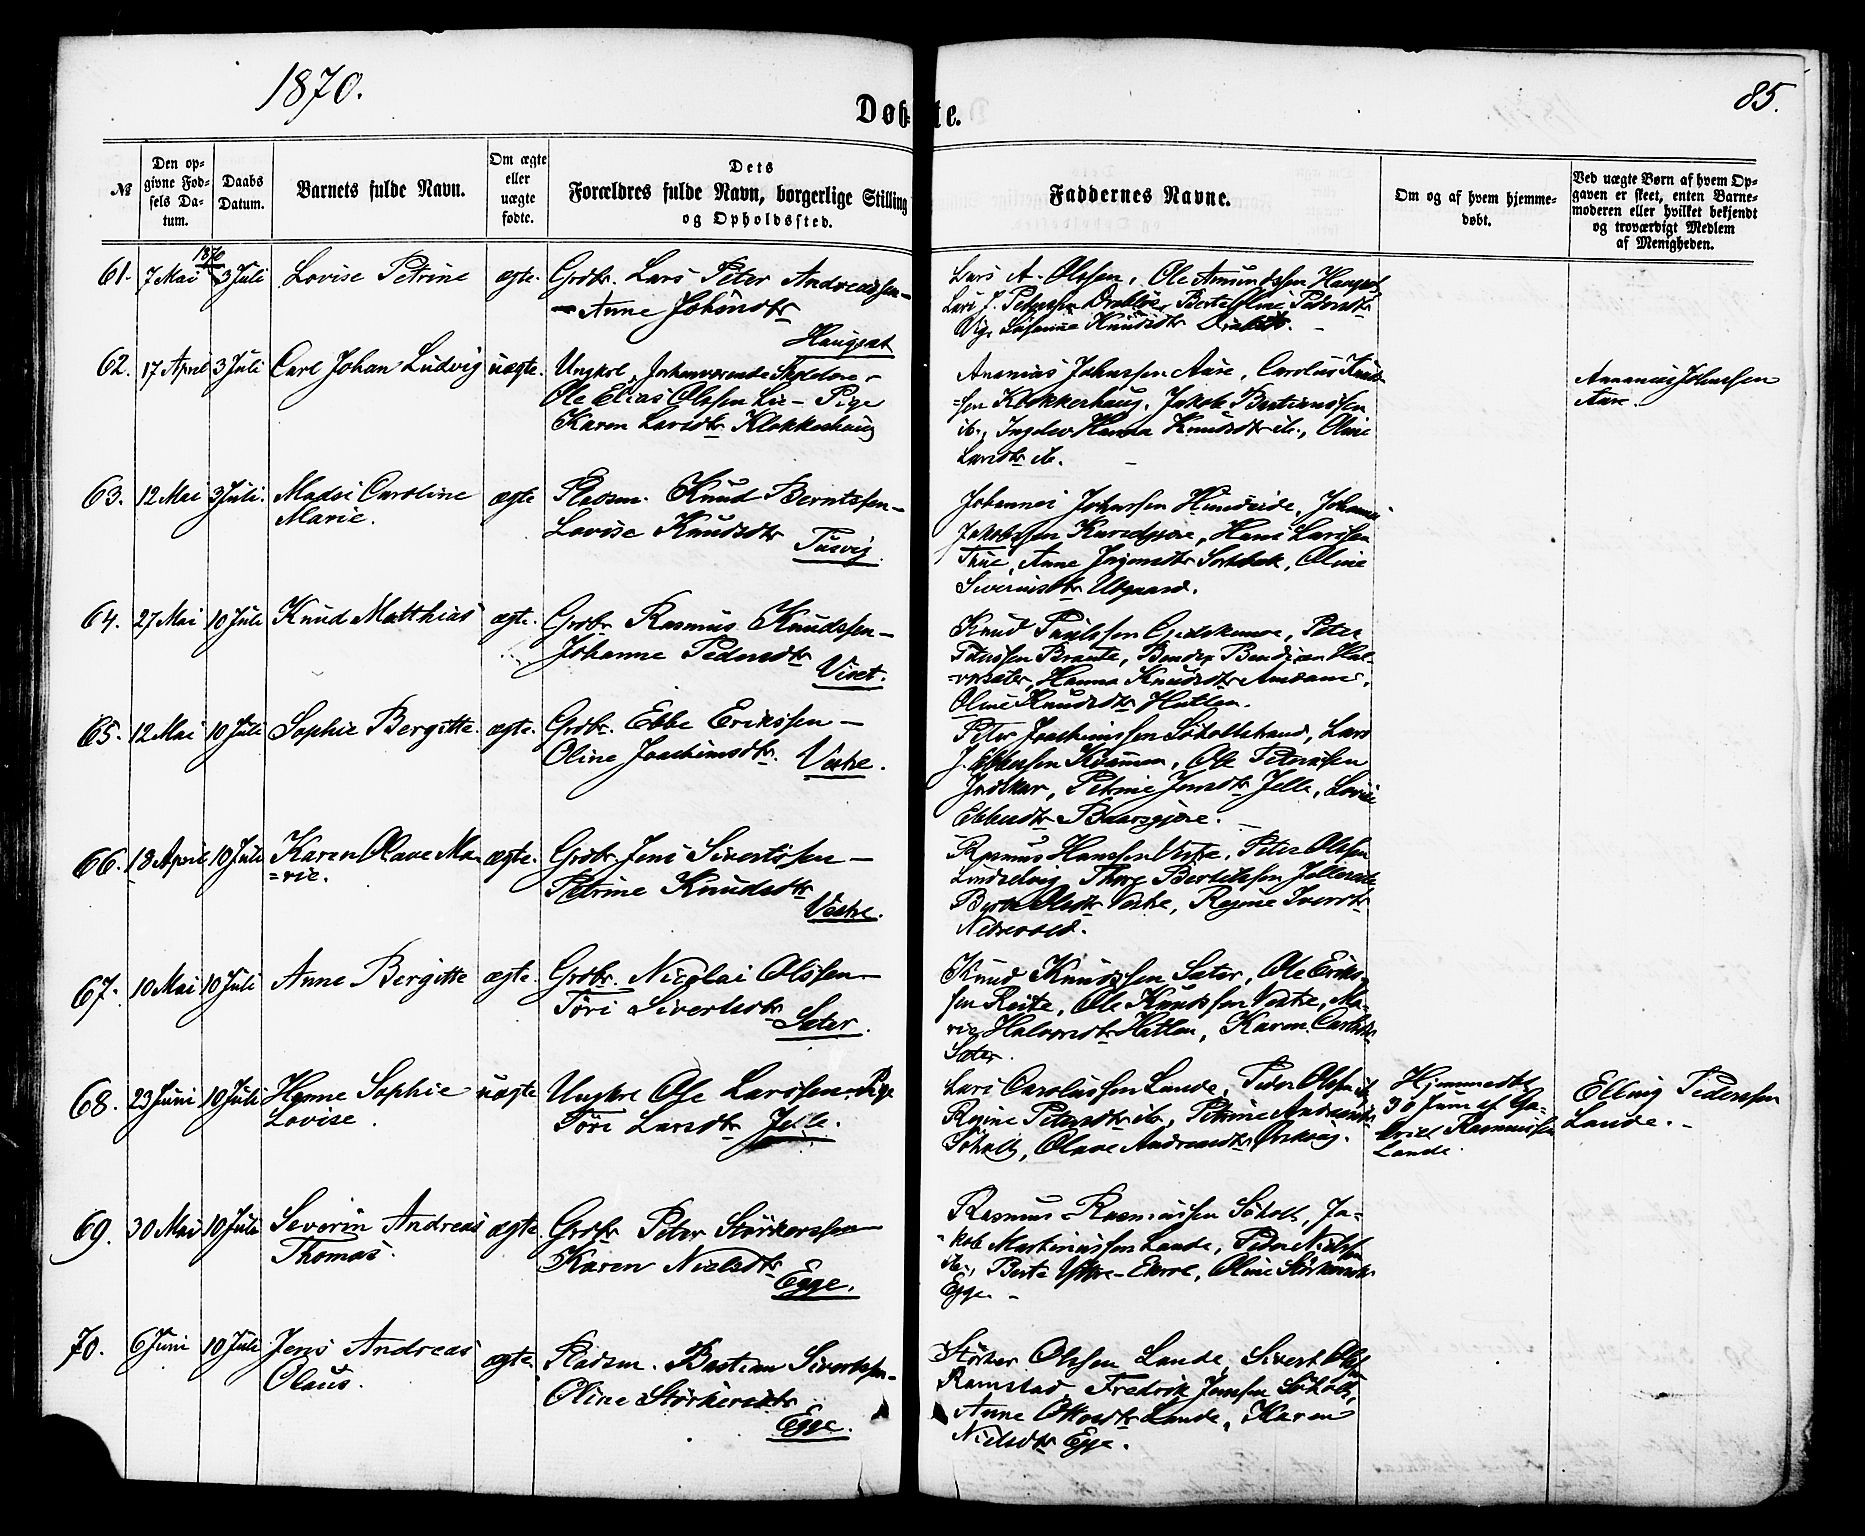 1870.
85.
Døbte.
№
Den op-
givne Fød-
sels Da-
tum.
Daabs
Datum.
Barnets fulde Navn.
Om ægte
eller
uægte
fødte.
Dets
Forældres fulde Navn, borgerlige Stilling
og Opholdssted.
Faddernes Navne.
Om og af hvem hjemme-
døbt.
Ved uægte Børn af hvem Op-
gaven er skeet, enten Barne-
moderen eller hvilket bekjendt
og troværdigt Medlem
af Menigheden.
1870
61. 7 Mai 3 Juli Lovise Petrine ægte. Grdbr. Lars Peter Andreassen –
Anne Johnsdtr
Haugset
Lars A. Olssen, Ole Amundssen Haugset,
Lars J. Petersen Drabløs, Berte Oline Pedersdtr
Knudsdtr
62. 17 April 3 Juli Carl Johan Ludvig uægte. Ungkrl.
Ole Elias Olssen Lie – Pige
Karen Larsdtr Klokkerhaug
Ananias Johnssen Aure, Carolus Knud-
=sen Klokkerhaug, Jakob Bastianssen
ib., Hanna Knudsdtr ib., Oline
Larsdtr ib. –
Annanias Johnssen
Aure.
63. 12 Mai 3 Juli. Madsi Caroline
Marie.
ægte Pladsm. Knud Berntssen –
Lovise Knudsdtr
Tusvig
Johannes Johnssen Hundeide, Johannes
Jakobssen Hans Larssen
Thue, Anne Sortebek, Oline
Siverinsdtr Utgaard.
64. 27 Mai 10 Juli Knud Matthias ægte. Grdbr. Rasmus Knudssen –
Johanne Pedersdtr
Viset.
Knud Paulssen Gjedskemoe, Peter
Peterssen Braute, Bendix Bendixen Hal-
=vorsæter, Hanna Knudsdtr Amdam,
Oline Knudsdtr Hatlen.
65. 12 Mai 10 Juli Sophie Bergitte ægte. Grdbr. Ebbe Erikssen –
Oline Joachimsdtr.
Vestre.
Peter Joachimssen Søholtstrand, Lars
J. Ebbessen Kvammen, Ole Peterssen
Indskar, Petrine Jensdtr Jelle, Lovise
Ebbesdtr Baarsgjære. –
66. 18 April 10 Juli Karen Olave Ma-
=rie.
ægte. Grdbr. Jens Sivertssen –
Petrine Knudsdtr
Vestre.
Rasmus Hanssen Vestre, Peter Olssen
Lindselvig, Thore Bertelssen
Berte Olsdtr Vestre, Regine Iversdtr
Nedrevold.
67. 10 Mai 10 Juli Anne Bergitte ægte. Grdbr. Nicolai Olssen –
Tøri Sivertsdtr
Sæter.
Knud Knudssen Sæter, Ole Eriks-
sen Reite, Ole Knudssen Vestre, Ma-
rie Halvorsdtr Hatlen, Karen
Sæter.
68. 23 Juni 10 Juli Hanne Sophie
Lovise.
uægte Ungkrl Ole Larssen – Pige
Tøri Larsdtr Jelle.
Lars Carolussen Lande, Peder Olssen ib
Regine Petersdtr ib., Petrine Andreasdtr
Søholt, Olave Andreasdtr
Hjemmedbt
30 Juni af Ga-
briel Rasmussen
Lande.
Elling Pederssen
Lande. –
69. 30 Mai 10 Juli Severin Andreas
Thomas.
ægte. Grdbr Peter Størkerssen –
Karen Nielsdtr
Egge.
Rasmus Rasmussen Søholt, Ja-
=kob Martinussen Lande, Peder Nielssen
ib., Berte Oline Størkersdtr
Egge. –
70. 6 Juni 10 Juli Jens Andreas
Olaus.
ægte Pladsm. Bastian Sivertssen –
Oline Størkersdtr
Egge.
Størker Olssen Lande, Sivert Olssen
Ramstad, Fredrik Jenssen Søholt,
Anne Ottosdtr Lande, Karen
Nielsdtr Egge.